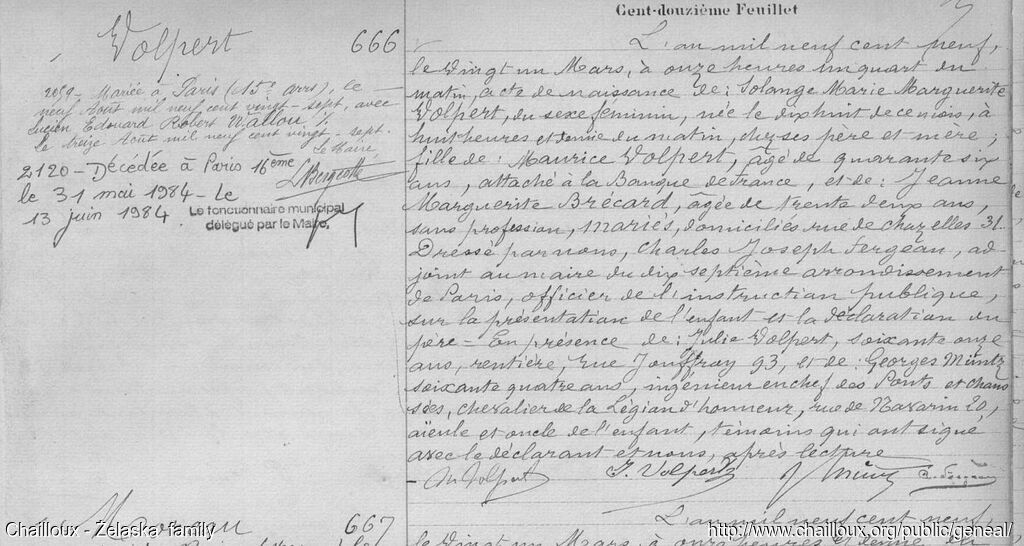 Cent-douzième Feuillet
Volpert 666
2059 - Mariée à Paris (15e arrs), le
neuf Août mil neuf cent vingt-sept, avec
Lucien Edouard Robert Wallou ./.
le treize Août mil neuf cent vingt-sept.
Le Maire
2120 - Décédée à Paris 16ème
le 31 mai 1984 - Le
13 juin 1984
Le fonctionnaire municipal
délégué par le Maire,
L'an mil neuf cent neuf,
le vingt un Mars, à onze heures un quart du
matin, acte de naissance de: Solange Marie Marguerite
Volpert, du sexe féminin, née le dix huit de ce mois, à
huit heures et demie du matin, chez ses père et mère;
fille de: Maurice Volpert, âgé de quarante six
ans, attaché à la Banque de France, et de: Jeanne
Marguerite Brécard, agée de trente deux ans,
sans profession, mariés, domiciliés rue de Chazelles 31.
Dressé par nous, Charles Joseph Fergeau, ad-
joint au maire du dix septième arrondissement
de Paris, officier de l'instruction publique,
sur la présentation de l'enfant et la déclaration du
père - En présence de: Julie Volpert, soixante onze
ans, rentière, rue Jouffroy 93, et de: Georges Müntz
soixante quatre ans, ingénieur en chef des Ponts et chaus
sées, chevalier de la Légion d'honneur, rue de Navarin 20,
aïeule et oncle de l'enfant, témoins qui ont signé
avec le déclarant et nous, après lecture
M Volpert J. Volpert
667
L'an mil neuf cent neuf,
le vingt un Mars, à onze heures et demie du
Chailloux - Zelaska family
http://www.chailloux.org/public/geneal/